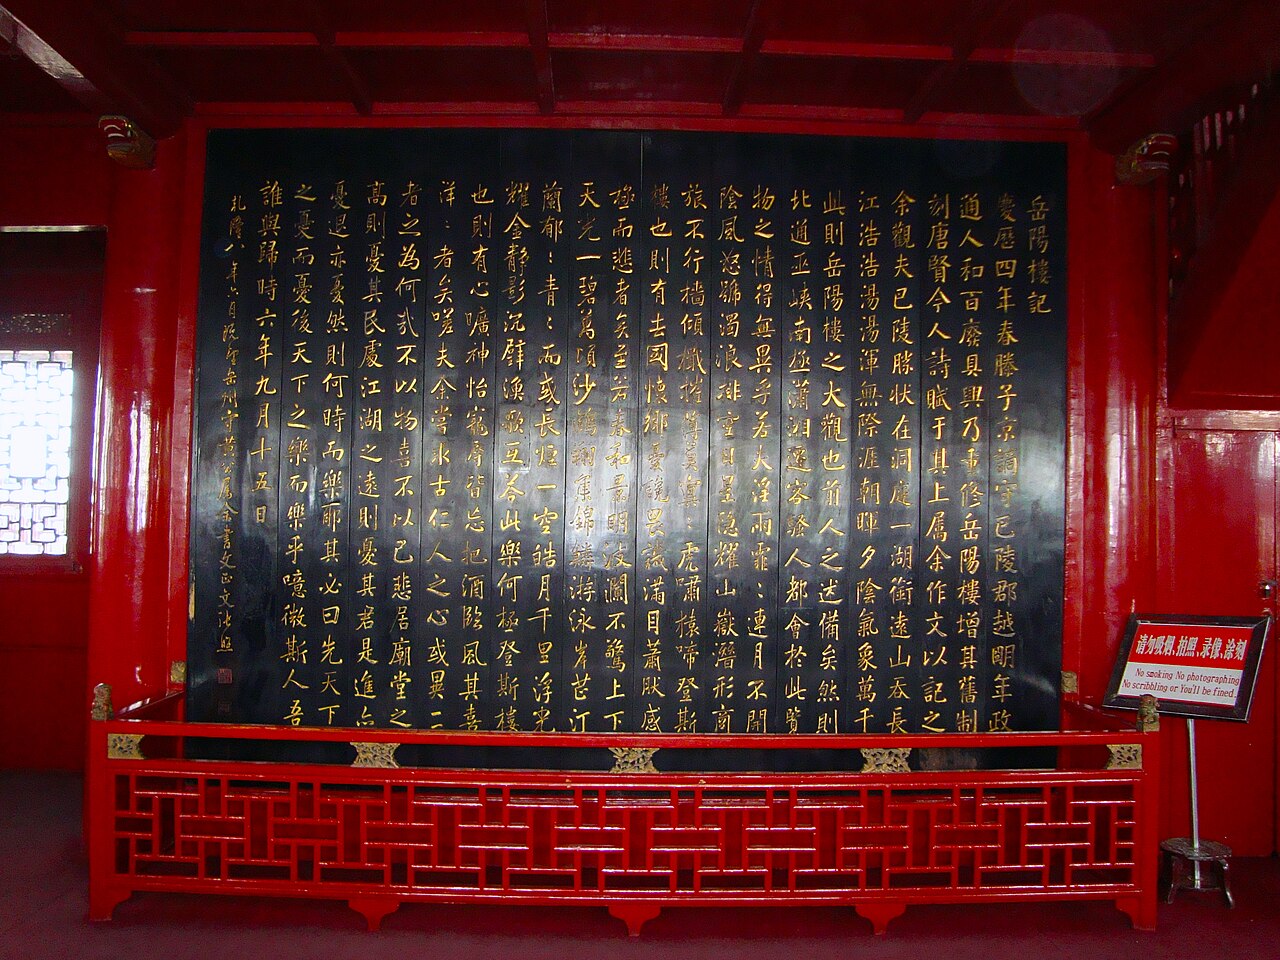 岳陽樓記
慶歷四年春滕子京謫守巴陵郡越明年政
通人和百廢具興乃重修岳陽樓增其舊制
刻唐賢今人詩賦于其上屬余作文以記之
余觀夫巴陵勝狀在洞庭一湖銜遠山吞長
江浩浩湯湯渾無際涯朝暉夕陰氣象萬千
此則岳陽樓之大觀也前人之述備矣然則
北通巫峽南極瀟湘遷客騷人都會於此覽
物之情得無異乎若夫淫雨霏：連月不開
陰風怒號濁浪排空日星隱耀山嶽潛形商
旅不行檣傾檝摧薄暮冥：虎嘯猿啼登斯
樓也則有去國懷鄉憂讒畏譏滿目蕭然感
極而悲者矣至若春和景明波瀾不驚上下
天光一碧萬頃沙鷗翔集錦鱗游泳岸芷汀
蘭郁：青：而或長煙一空皓月千里浮光
耀金靜影沉璧漁歌互答此樂何極登斯樓
也則有心曠神怡寵辱皆忘把酒臨風其喜
洋：者矣嗟夫余嘗求古仁人之心或異二
者之為何哉不以物喜不以己悲居廟堂之
高則憂其民處江湖之遠則憂其君是進亦
憂退亦憂然則何時而樂耶其必曰先天下
之憂而憂後天下之樂而樂乎噫微斯人吾
誰與歸時六年九月十五日
乾隆八年六月既望岳州守黃公屬余書文正文張照
请勿吸烟、拍照、录像、涂刻
No smoking No photographing
No scribbling or You'll be fined.